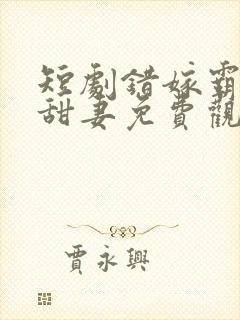 短劇錯嫁霸
甜妻免費觀
賈永興